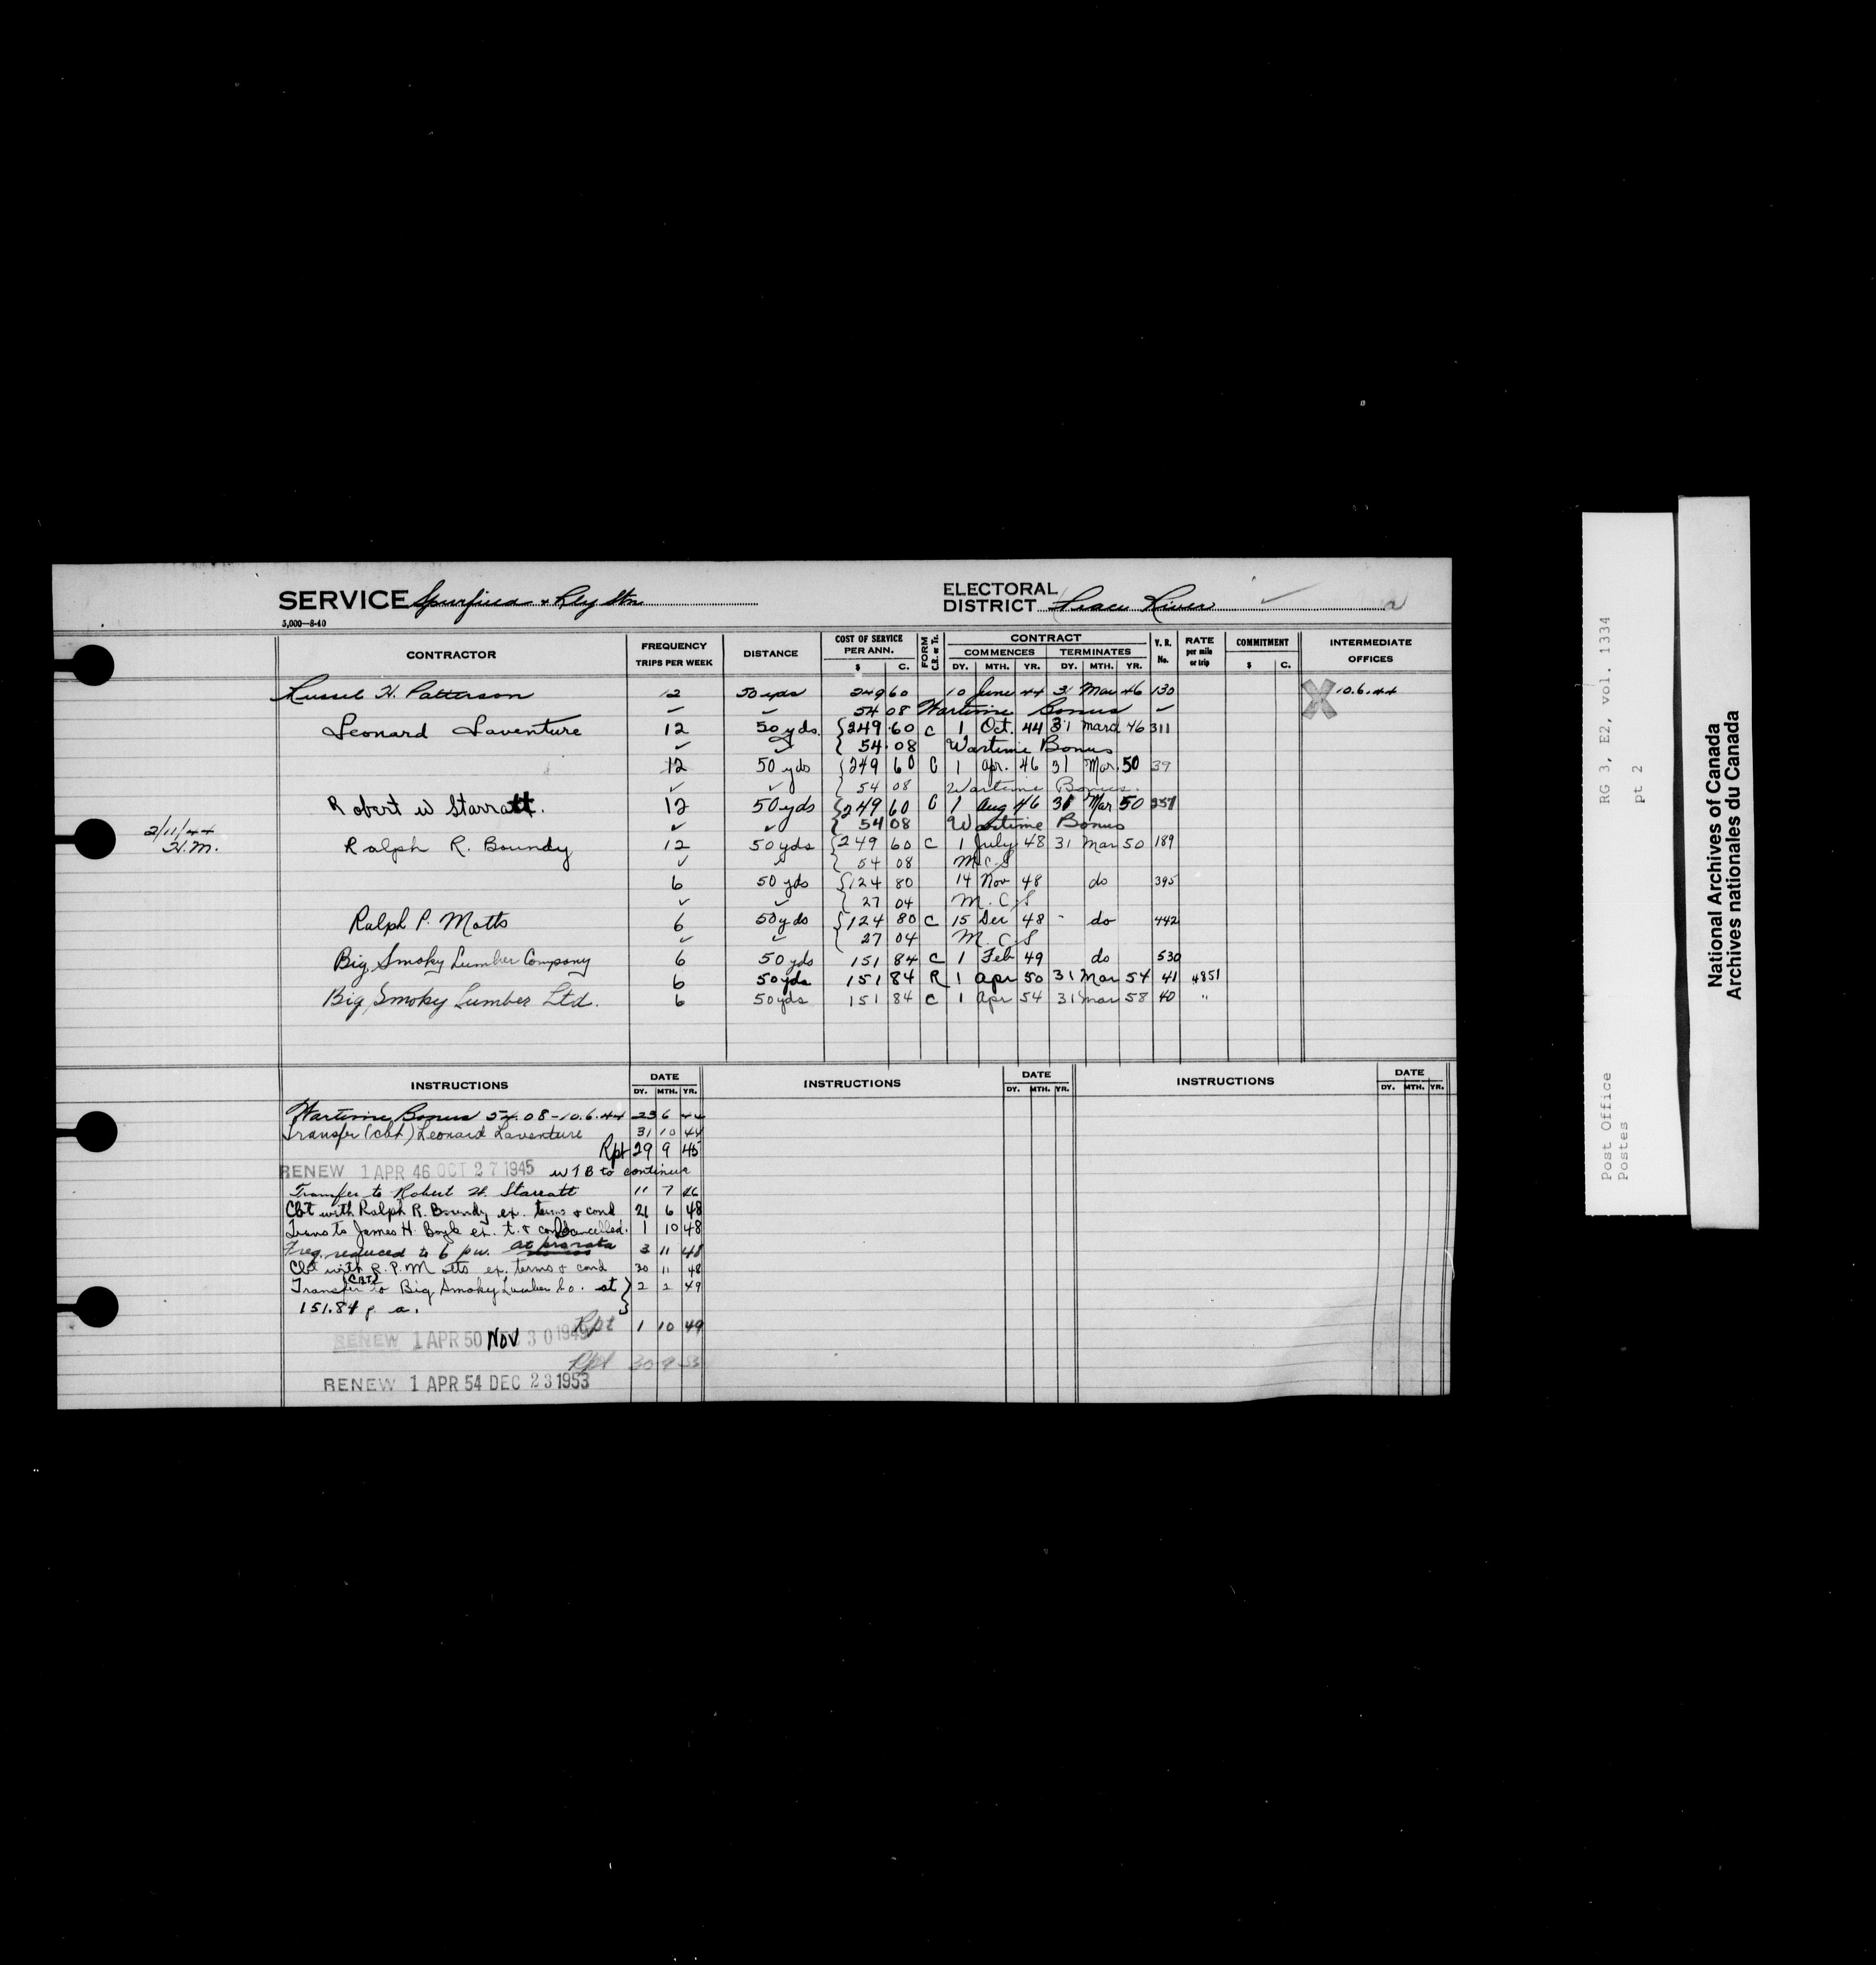 SERVICE Spurfield & Rly Stn
ELECTORAL DISTRICT Peace River a
5,000-8-40
CONTRACTOR FREQUENCY TRIPS PER WEEK DISTANCE COST OF SERVICE PER ANN. $ C. FORM C.R. or Tr. CONTRACT COMMENCES DY. MTH. YR. TERMINATES DY. MTH. YR. V. R. No. RATE per mile or trip COMMITMENT $ C. INTERMEDIATE OFFICES
Russel H. Patterson 12 50 yds 249 60 10 June 44 31 Mar 46 130 X 10.6.44
✓ ✓ 54 08 Wartime Bonus ✓
Leonard Laventure 12 50 yds. {249 60 C 1 Oct. 44 31 March 46 311
✓ ✓ { 54 08 Wartime Bonus
12 50 yds {249 60 C 1 Apr. 46 31 Mar. 50 39
✓ ✓ { 54 08 Wartime Bonus.
Robert W Starratt. 12 50 yds {249 60 C 1 Aug 46 31 Mar 50 257
✓ ✓ { 54 08 Wartime Bonus
2/11/44
H.M.
Ralph R. Boundy 12 50 yds {249 60 C 1 July 48 31 Mar 50 189
✓ ✓ { 54 08 M.C.S
6 50 yds {124 80 14 Nov 48 do 395
✓ ✓ { 27 04 M.C.S
Ralph P. Motts 6 50 yds {124 80 C 15 Dec 48 - do 442
✓ ✓ { 27 04 M.C.S
Big Smoky Lumber Company 6 50 yds 151 84 C 1 Feb 49 do 530
6 50 yds 151 84 R 1 Apr 50 31 Mar 54 41 4851
Big Smoky Lumber Ltd. 6 50 yds 151 84 C 1 Apr 54 31 Mar 58 40 "
INSTRUCTIONS DATE DY. MTH. YR. INSTRUCTIONS DATE DY. MTH. YR. INSTRUCTIONS DATE DY. MTH. YR.
Wartime Bonus 54.08-10.6.44 23 6 44
Transfer (cbt) Leonard Laventure 31 10 44
Rpt 29 9 45
RENEW 1 APR 46 OCT 27 1945 W T B to continue
Transfer to Robert W. Starratt 11 7 46
Cbt with Ralph R. Boundy ex. terms & cond 21 6 48
Trans to James H. Boyle ex. t. & cond Cancelled. 1 10 48
Freq. reduced to 6 p.w. at prorata 3 11 48
Cbt with R. P. Motts ex. terms & cond 30 11 48
Transfer (CBT) to Big Smoky Lumber Co. at } 2 2 49
151.84 p. a.
Rpt 1 10 49
RENEW 1 APR 50 NOV 30 1949
Rpt 30 9 53
RENEW 1 APR 54 DEC 23 1953
RG 3, E2, vol. 1334
pt 2
Post Office
Postes
National Archives of Canada
Archives nationales du Canada